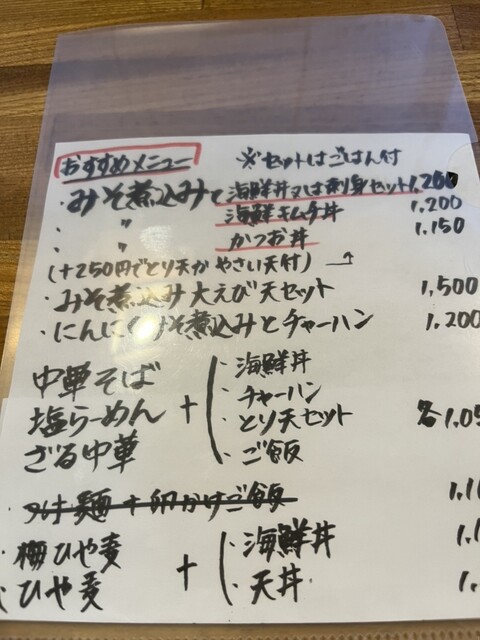 おすすめメニュー ※セットはごはん付
・みそ煮込みと海鮮丼又は刺身セット1,200
・ 〃 海鮮キムチ丼 1,200
・ 〃 かつお丼 1,150
(+250円でとり天かやさい天付)
・みそ煮込み大えび天セット 1,500
・にんにくみそ煮込みとチャーハン 1,200
中華そば
塩らーめん
ざる中華
+
・海鮮丼
・チャーハン
・とり天セット 各1,05
・ご飯
つけ麺+卵かけご飯 1,1
・梅ひや麦
・ひや麦
+
・海鮮丼 1,1
・天丼 1,